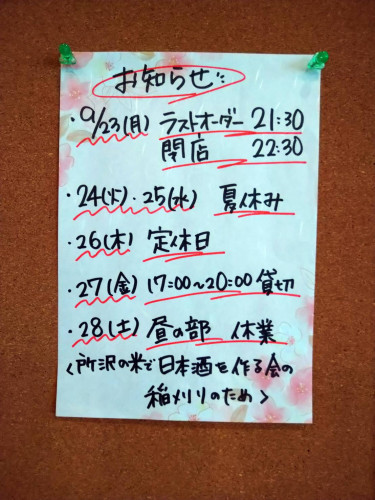 お知らせ
・9/23(月) ラストオーダー 21:30
閉店 22:30
・24(火)・25(水) 夏休み
・26(木) 定休日
・27(金) 17:00～20:00 貸切
・28(土) 昼の部 休業
<所沢の米で日本酒を作る会の
稲刈りのため>